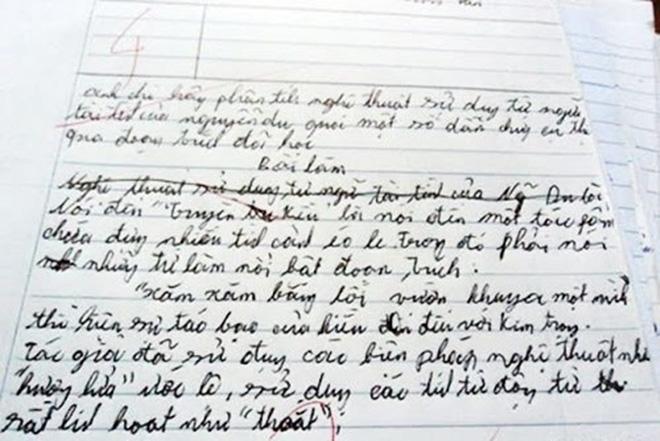 4
anh chi hãy phân tích nghê thuật sử duy từ ngữ
tài tình của nguyễn du, quoi một số dẫn chuy cu thể
qua đoạn trích đã học
Bài làm
Nghê thuật sử duy từ ngữ tài tình của Ng Du lời
Nói đến "Truyện Kiều lời nói đến một tác phẩm
chứa đựy nhiều tìn cản éo le. Trong đó phải nói
nhưng từ làm nổi bật đoạn trích.
"xăm xăm băng lối vườn khuya một mình
thể hiện sử táo bạo của kiều đến với Kim Trọy.
Tác giả đã sử duy các biên pháp nghê thuật như
"hương lửa" ước lê, sử duy các tín từ độy từ
rất lin hoạt như "thoắt";